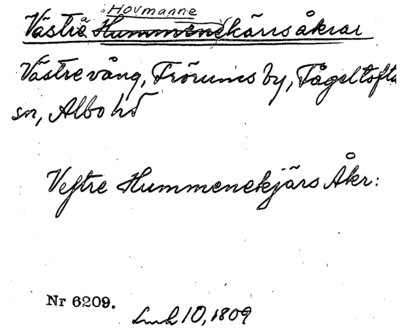 Hovmanne
Västra Hummenekärrsåkrar
Västrevång, Frörums by, Fågeltofta
sn, Albo hd
Vestre Hummenekjärs Åkr:
Nr 6209. Lmh 10, 1809